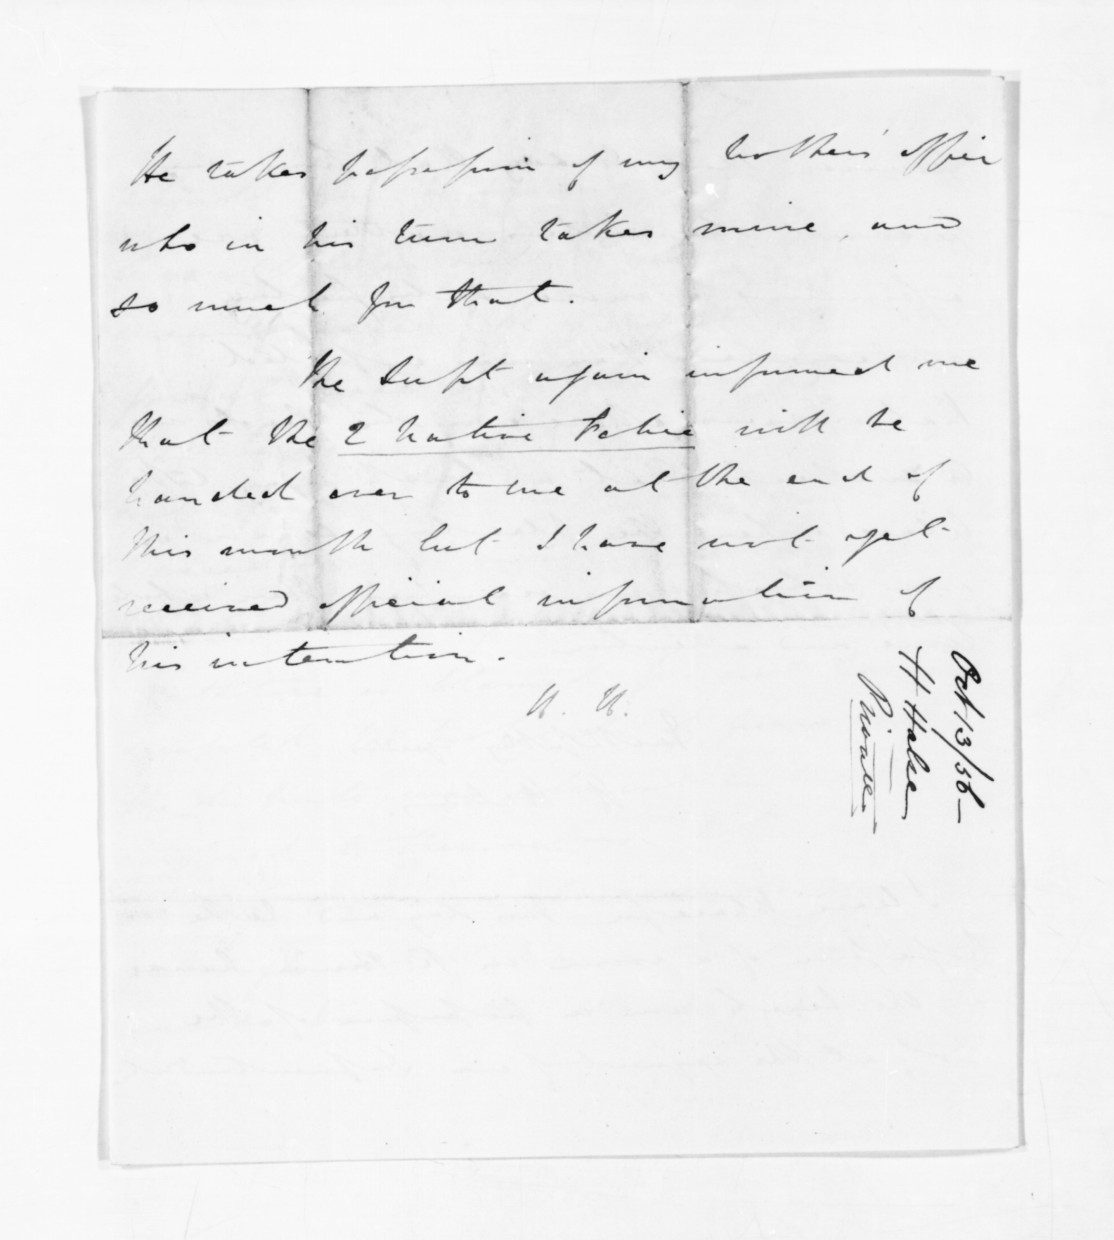 He takes possession of my brothers' office
who in his turn takes mine, and
so much for that.
The Supt again informed me
that the 2 Native Police will be
handed over to me at the end of
this month but I have not yet
received official information of
his intention.
H. H.
Oct 13/56 -
H Halse
Private